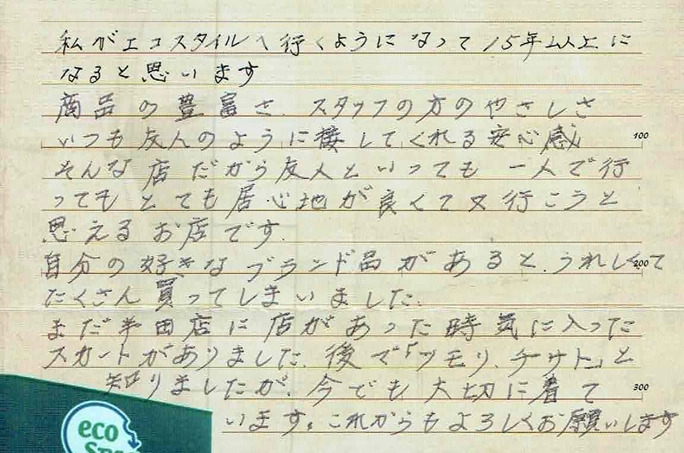 私がエコスタイルへ行くようになって15年以上に
なると思います
商品の豊富さ スタッフの方のやさしさ
いつも友人のように接してくれる安心感
100
そんな店だから友人といっても一人で行
ってもとても居心地が良くて又行こうと
思えるお店です.
自分の好きなブランド品があると、うれしくて
200
たくさん買ってしまいました.
まだ半田店に店があった時気に入った
スカートがありました.後で「ツモリ.チサト」と
知りましたが、今でも大切に着て
300
います。これからもよろしくお願いします
eco